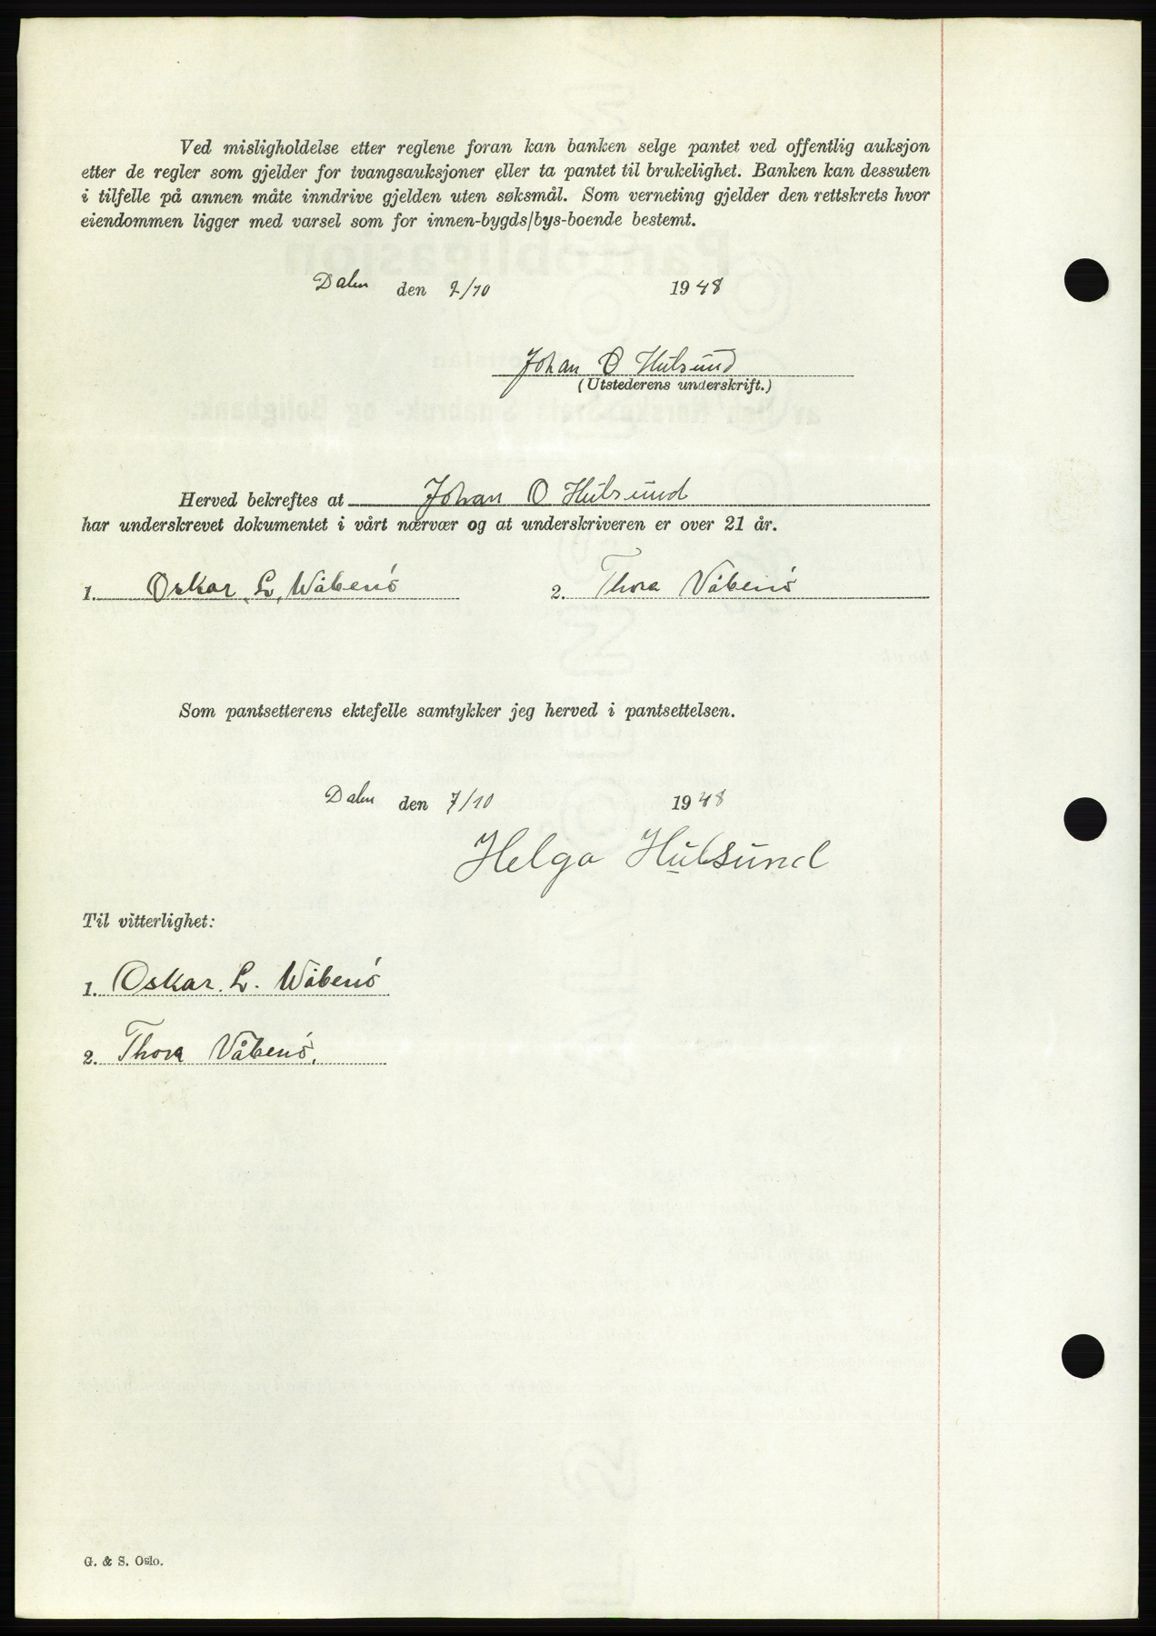 Ved misligholdelse etter reglene foran kan banken selge pantet ved offentlig auksjon
etter de regler som gjelder for tvangsauksjoner eller ta pantet til brukelighet. Banken kan dessuten
i tilfelle på annen måte inndrive gjelden uten søksmål. Som verneting gjelder den rettskrets hvor
eiendommen ligger med varsel som for innen-bygds/bys-boende bestemt.
Dalen den 2/10 1948
Johan O Hulsund
(Utstederens underskrift.)
Herved bekreftes at Johan O Hulsund
har underskrevet dokumentet i vårt nærvær og at underskriveren er over 21 år.
1. Oskar L. Wåbenö 2. Thora Våbenö
Som pantsetterens ektefelle samtykker jeg herved i pantsettelsen.
Dalen den 7/10 1948
Helga Hulsund
Til vitterlighet:
1. Oskar L. Wåbenö
2. Thora Våbenö.
G. & S. Oslo.